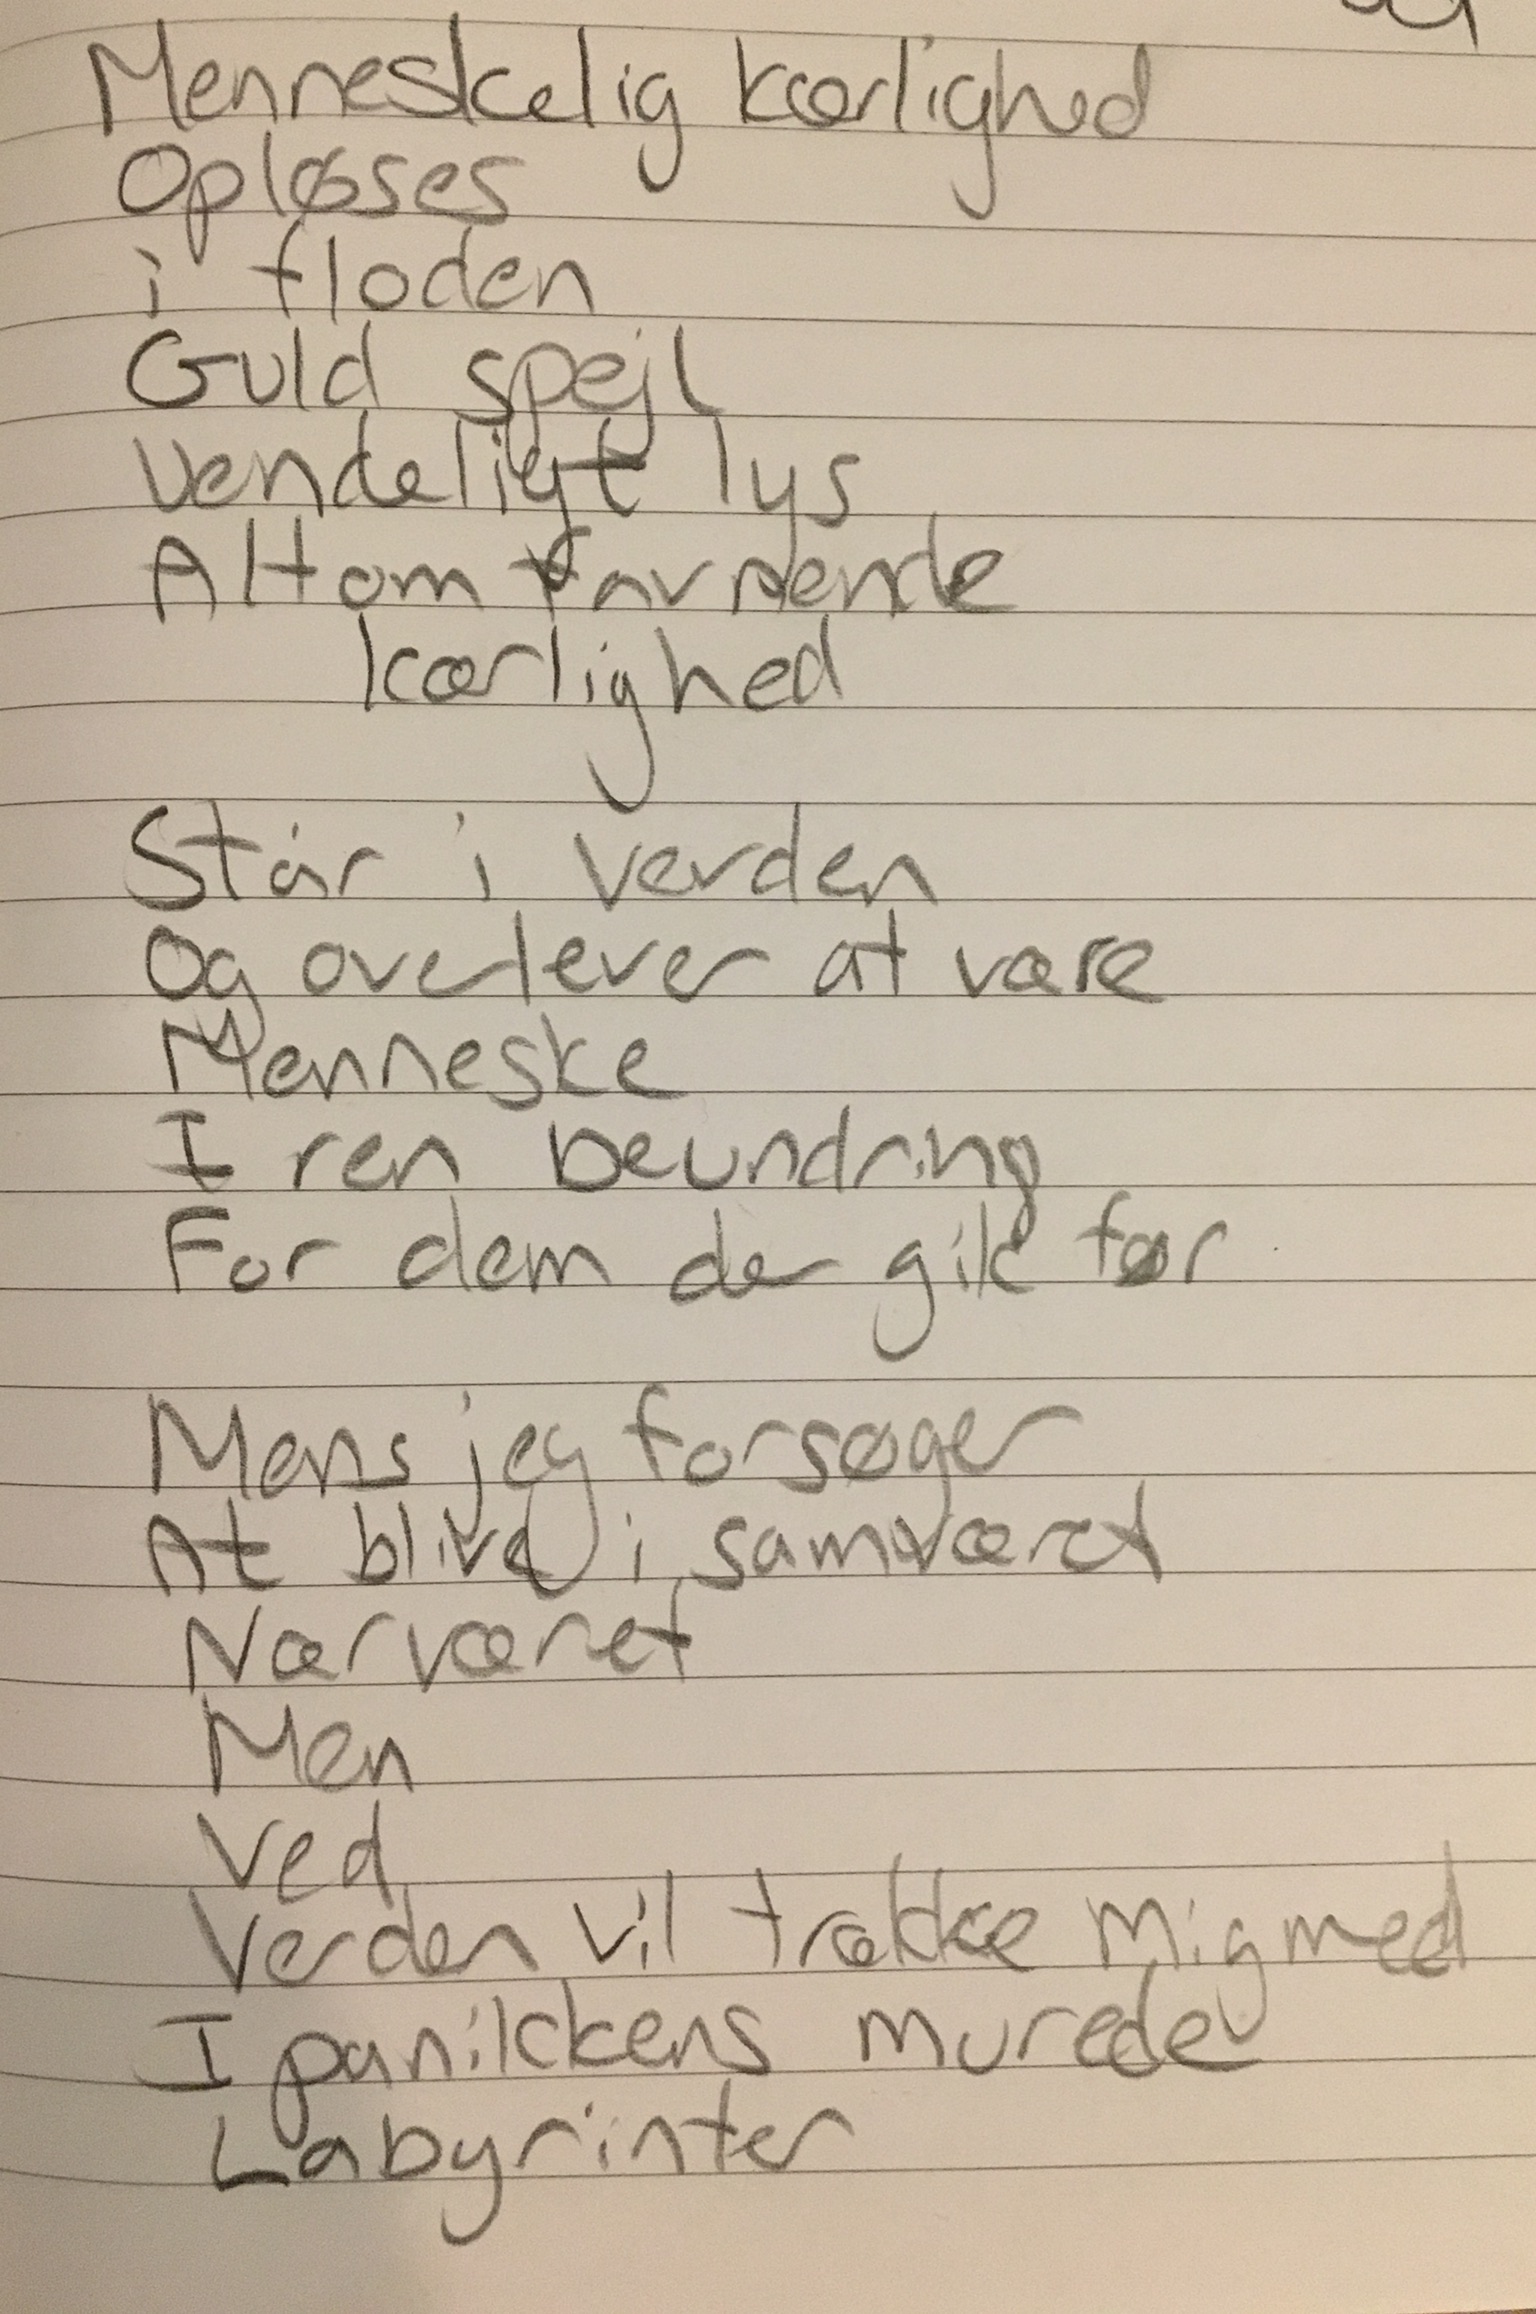 Menneskelig kærlighed
Opløses
i floden
Guld spejl
Vendeligt lys
Altomfavnende
kærlighed
Står i verden
Og overlever at være
Menneske
I ren beundring
For dem der gik før
Mens jeg forsøger
At blive i samværet
Nærværet
Men
Ved
Verden vil trække mig med
I panikkens murede
Labyrinter